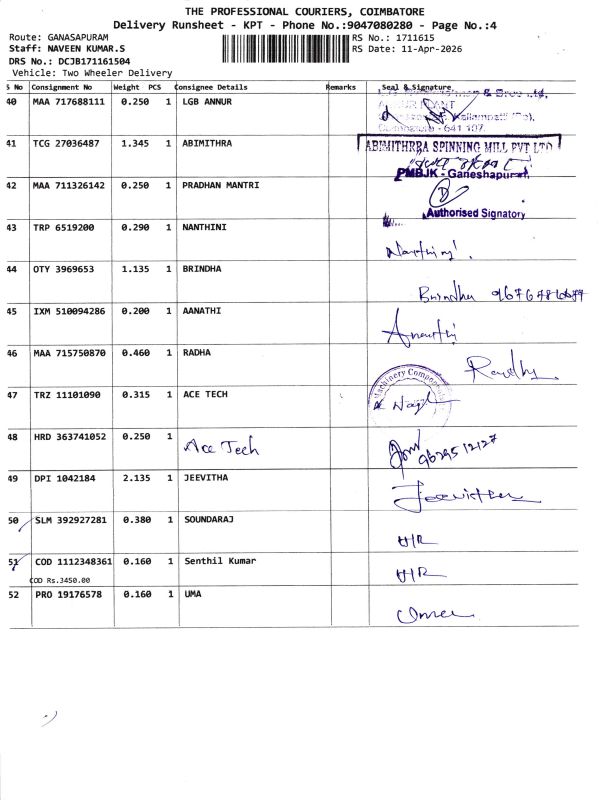 THE PROFESSIONAL COURIERS, COIMBATORE
Delivery Runsheet - KPT - Phone No.:9047080280 - Page No.:4
Route: GANASAPURAM
RS No.: 1711615
Staff: NAVEEN KUMAR.S
RS Date: 11-Apr-2026
DRS No.: DCJB171161504
Vehicle: Two Wheeler Delivery
S No Consignment No Weight PCS Consignee Details Remarks Seal & Signature
40 MAA 717688111 0.250 1 LGB ANNUR
Coimbatore - 641 107.
41 TCG 27036487 1.345 1 ABIMITHRA ABIMITHRRA SPINNING MILL PVT LTD
PMBJK - Ganeshapuram
42 MAA 711326142 0.250 1 PRADHAN MANTRI
Authorised Signatory
43 TRP 6519200 0.290 1 NANTHINI
44 OTY 3969653 1.135 1 BRINDHA
Brindha
45 IXM 510094286 0.200 1 AANATHI
46 MAA 715750870 0.460 1 RADHA
Machinery Components
47 TRZ 11101090 0.315 1 ACE TECH
48 HRD 363741052 0.250 1 Ace Tech
9629512127
49 DPI 1042184 2.135 1 JEEVITHA
50 SLM 392927281 0.380 1 SOUNDARAJ
H/R
51 COD 1112348361 0.160 1 Senthil Kumar
H/R
COD Rs.3450.00
52 PRO 19176578 0.160 1 UMA